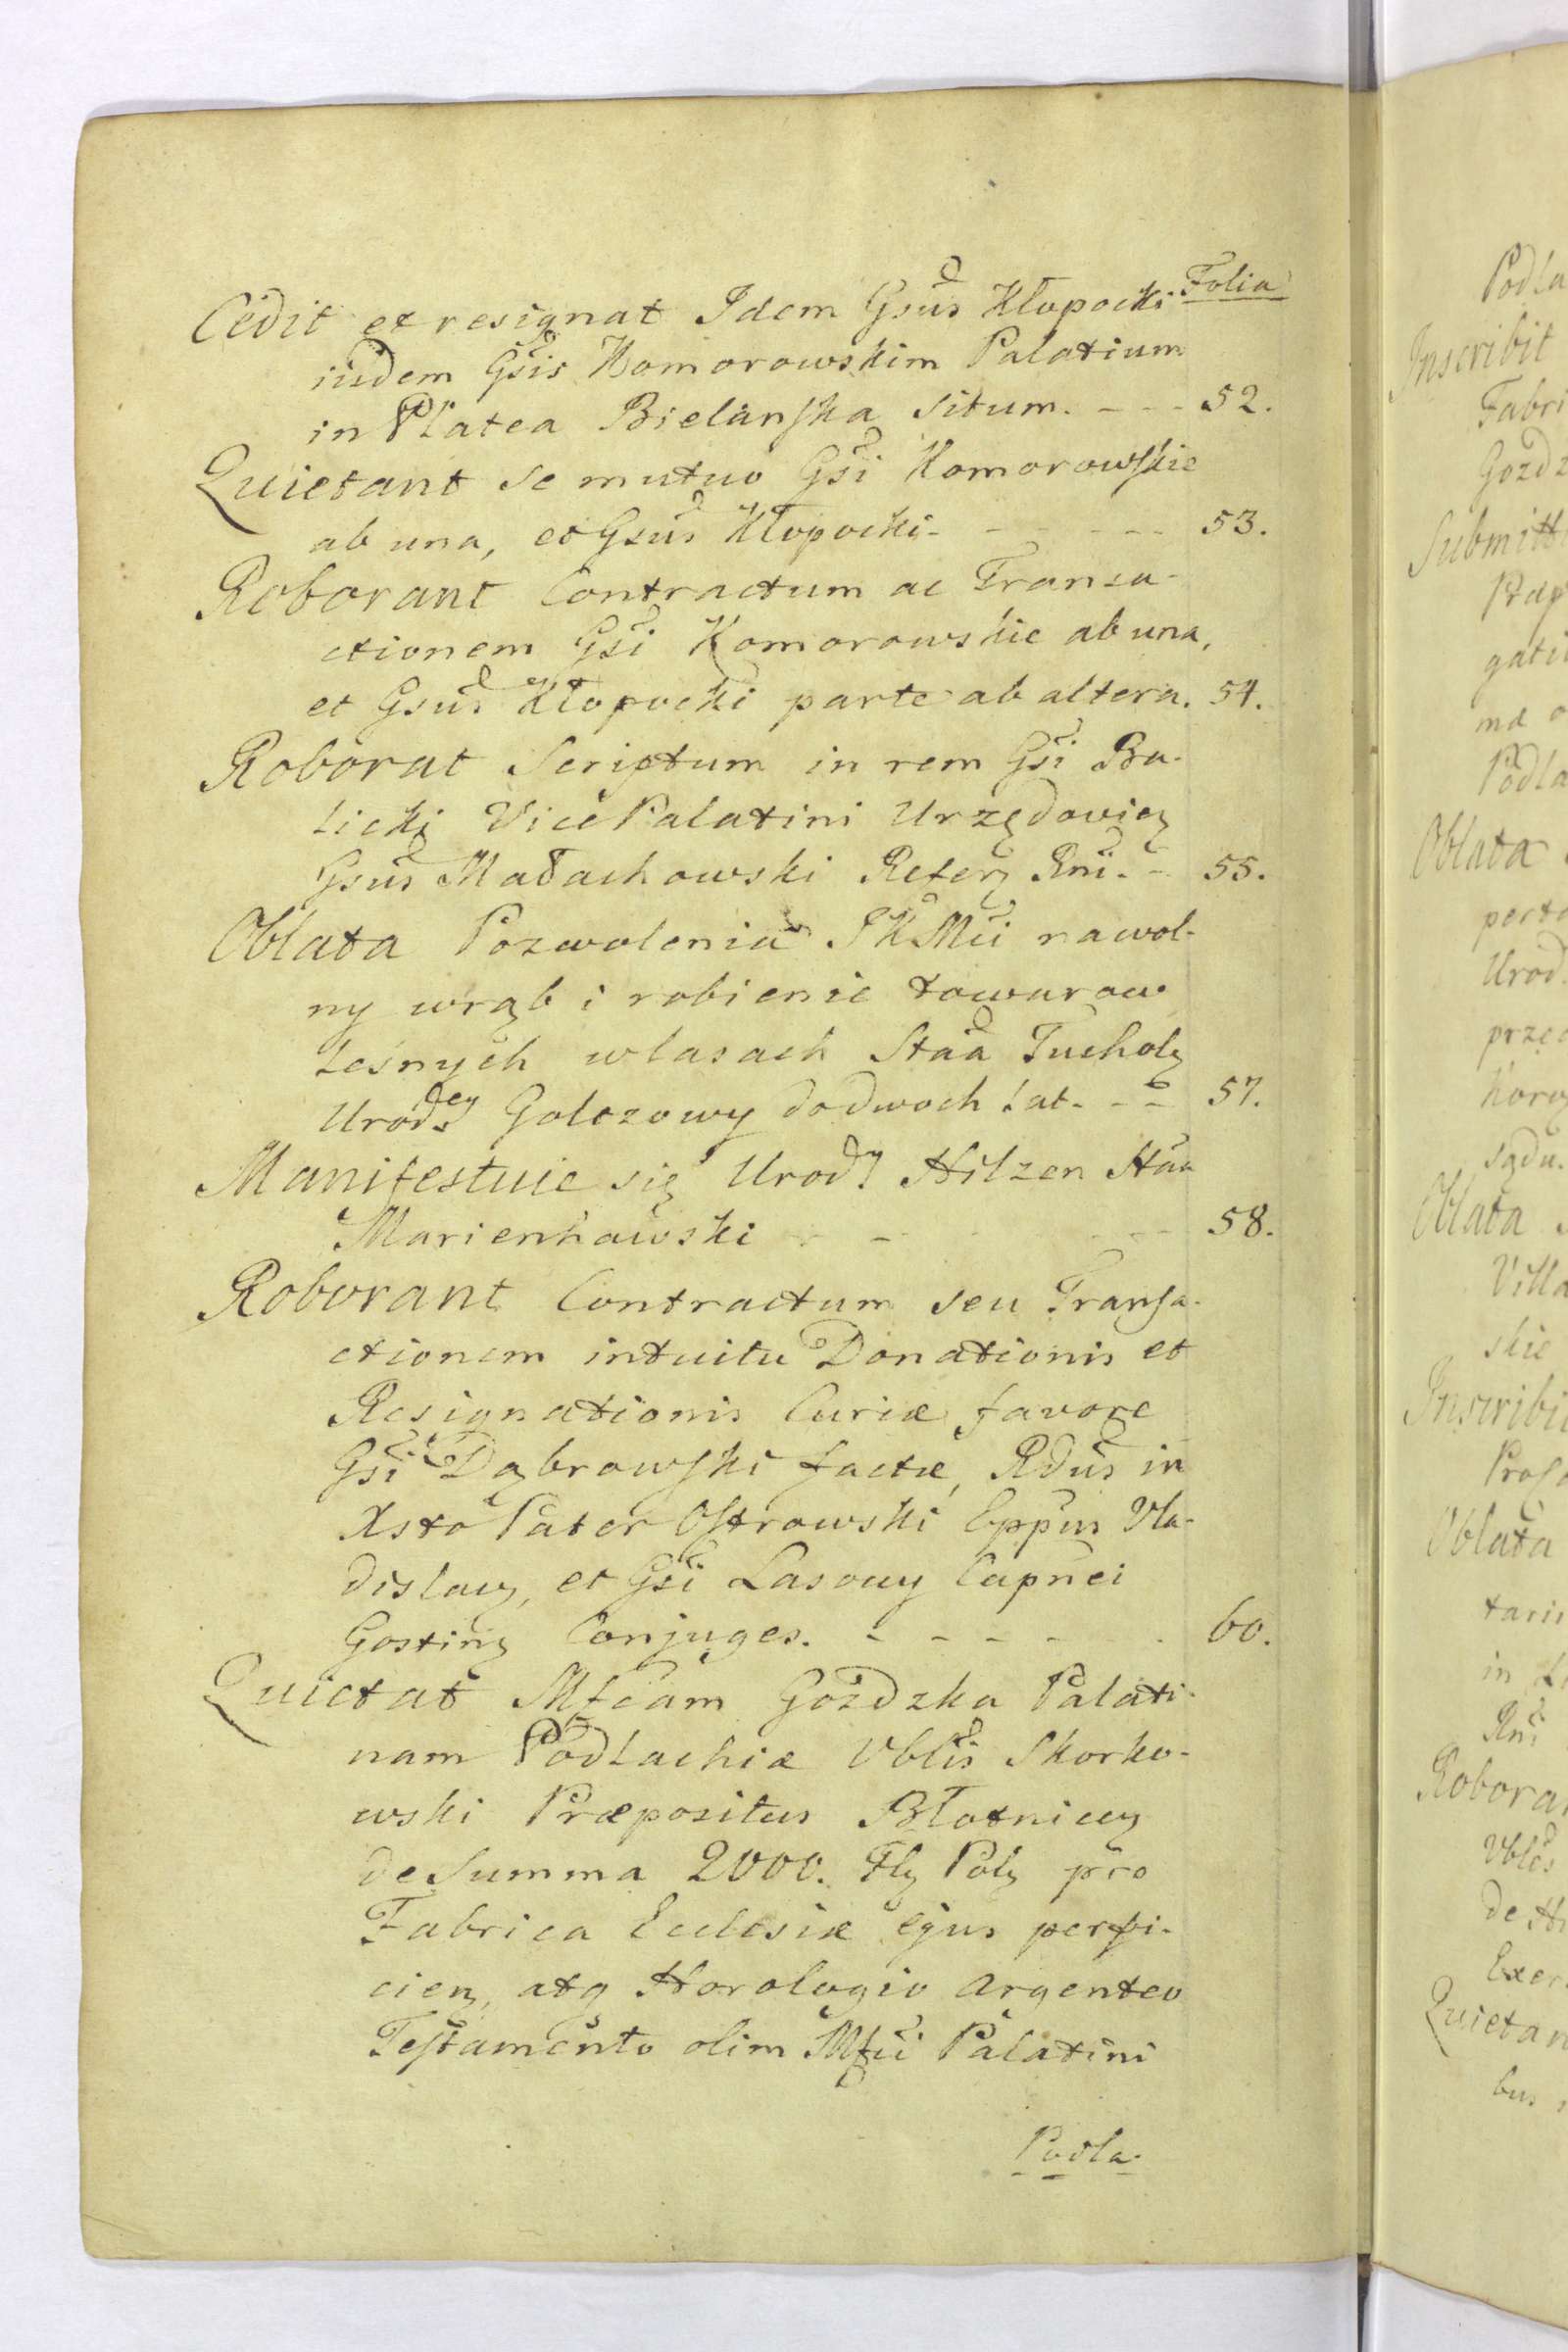 Folia
Cedit et resignat Idem Gsus Kłopocki
iisdem Gsis Komorowskim Palatium
in Platea Bielanska situm. - - - 52.
Quietant se mutuo Gsi Komorowskie
ab una, et Gsus Kłopocki - - - - 53.
Roborant Contractum ac Transa-
ctionem Gsi Komorowskie ab una,
et Gsus Kłopocki parte ab altera. 54.
Roborat Scriptum in rem Gsi Ba-
licki Vice Palatini Urzędovien
Gsus Małachowski Refer Rni. - 55.
Oblata Pozwolenia JKMci na wol-
ny wrąb i robienie towarow
leśnych w lasach Stta Tuchol
Urodey Golczowy do dwoch lat. - - 57.
Manifestuie się Urody Hilzen Stta
Marienhawski - - - 58.
Roborant Contractum seu Transa-
ctionem intuitu Donationis et
Resignationis Curiæ favore
Gsi Dąbrowski factæ, Rdus in
Xsto Pater Ostrowski Eppus Vla-
dislav, et Gsi Lasowy Capnei
Gostin Conjuges. - - - - - 60.
Quietat Mfcam Gozdzka Palati-
nam Podlachiæ Vblis Skorko-
wski Præpositus Błotnicen
de Summa 2000. Fl Pol pro
Fabrica Eclesiæ ejus perfi-
cien, atq Horologio Argenteo
Testamento olim Mfci Palatini
Podla-
Podla
Inscribit
Fabri
Gozdz
Submitt
Præp
gati
Podla
Oblata
Urod.
sądu.
Oblata
Villa
skie
Inscribi
Oblata
in
Rni
Robora
Vbles
de
Quietan
bus